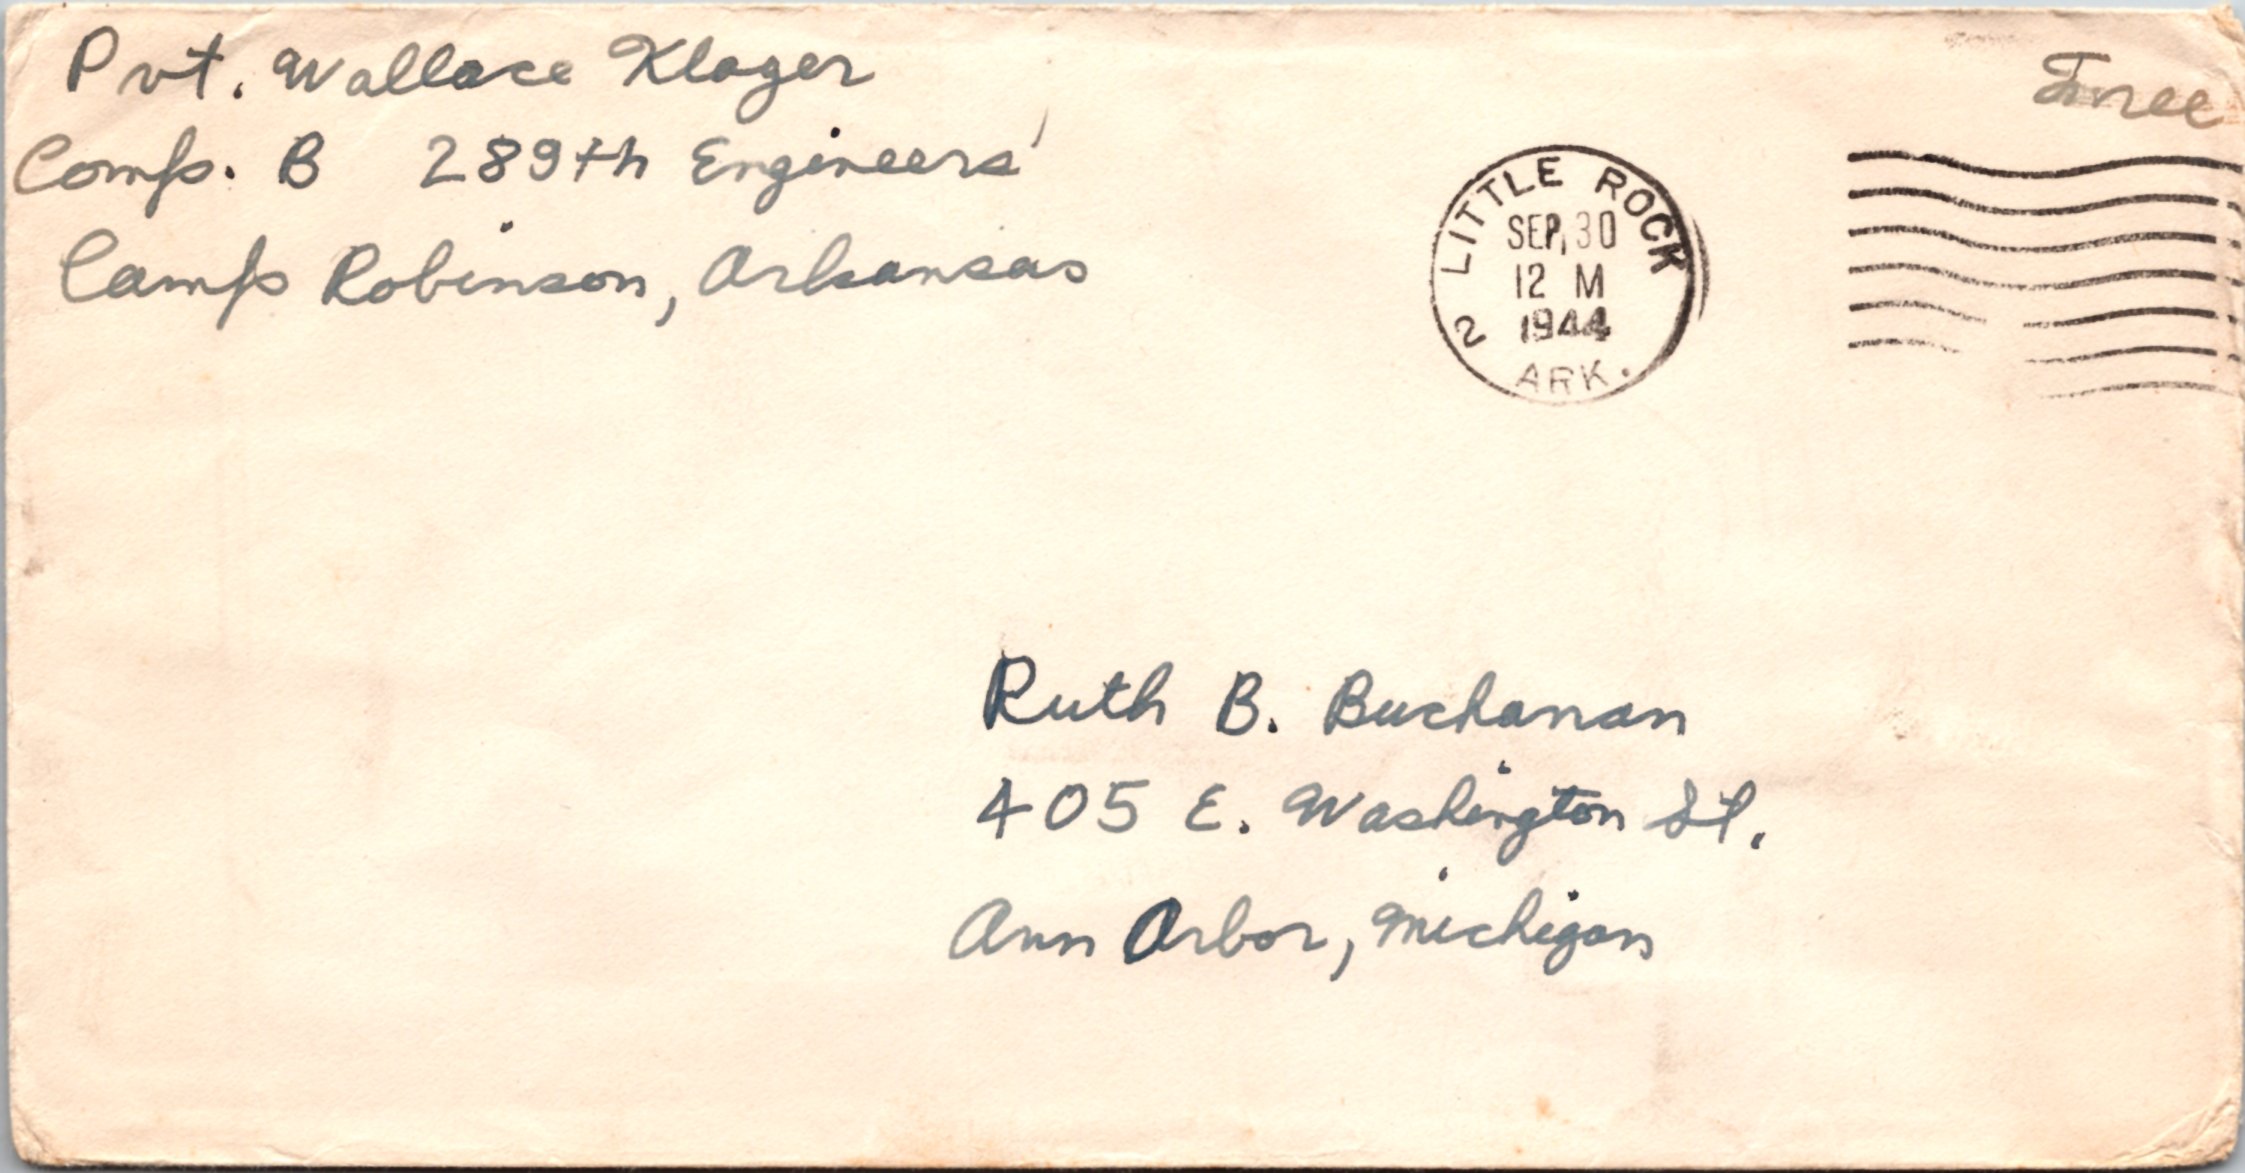 Pvt. Wallace Klager
Comp. B 289th Engineers
Camp Robinson, Arkansas
Free
2 LITTLE ROCK
SEP 30
12 M
1944
ARK.
Ruth B. Buchanan
405 E. Washington St.
Ann Arbor, Michigan